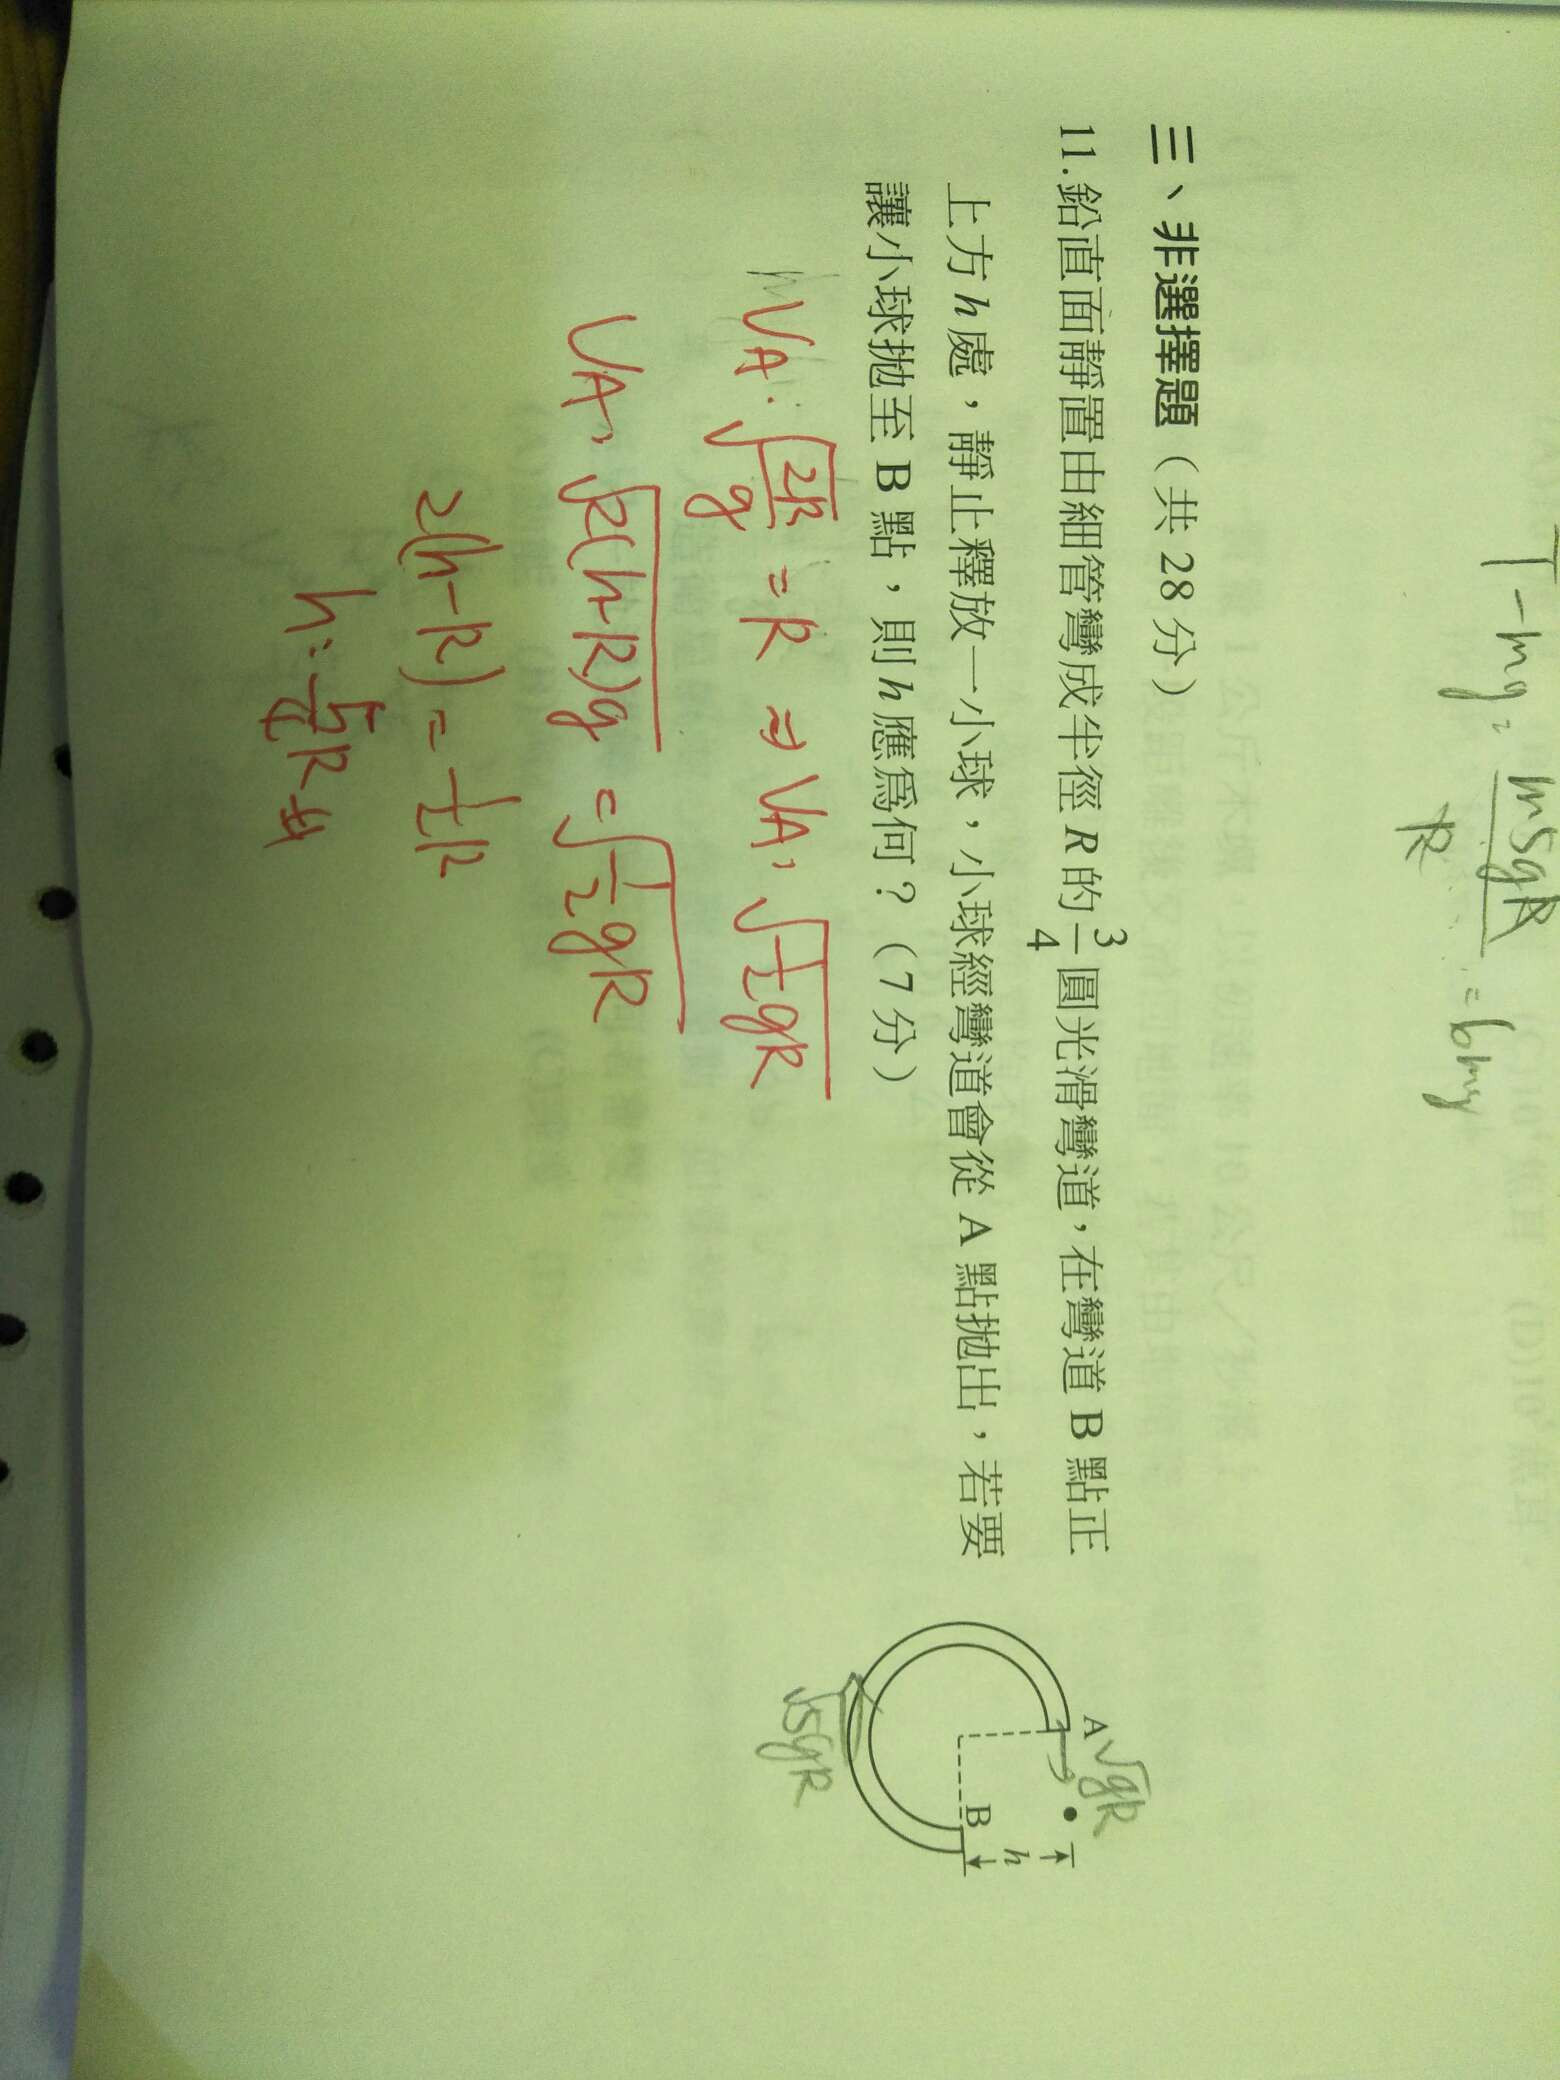 T-mg = m5gR/R = 6mg
三、非選擇題（共 28 分）
11.鉛直面靜置由細管彎成半徑 R 的 3/4 圓光滑彎道，在彎道 B 點正
上方 h 處，靜止釋放一小球，小球經彎道會從 A 點拋出，若要
讓小球拋至 B 點，則 h 應為何？（7 分）
A √gR
h
B
√5gR
VA·√(2R/g) = R ⇒ VA = √(1/2 gR)
VA = √(2(h-R)g) = √(1/2 gR)
2(h-R) = 1/2 R
h = 5/4 R #